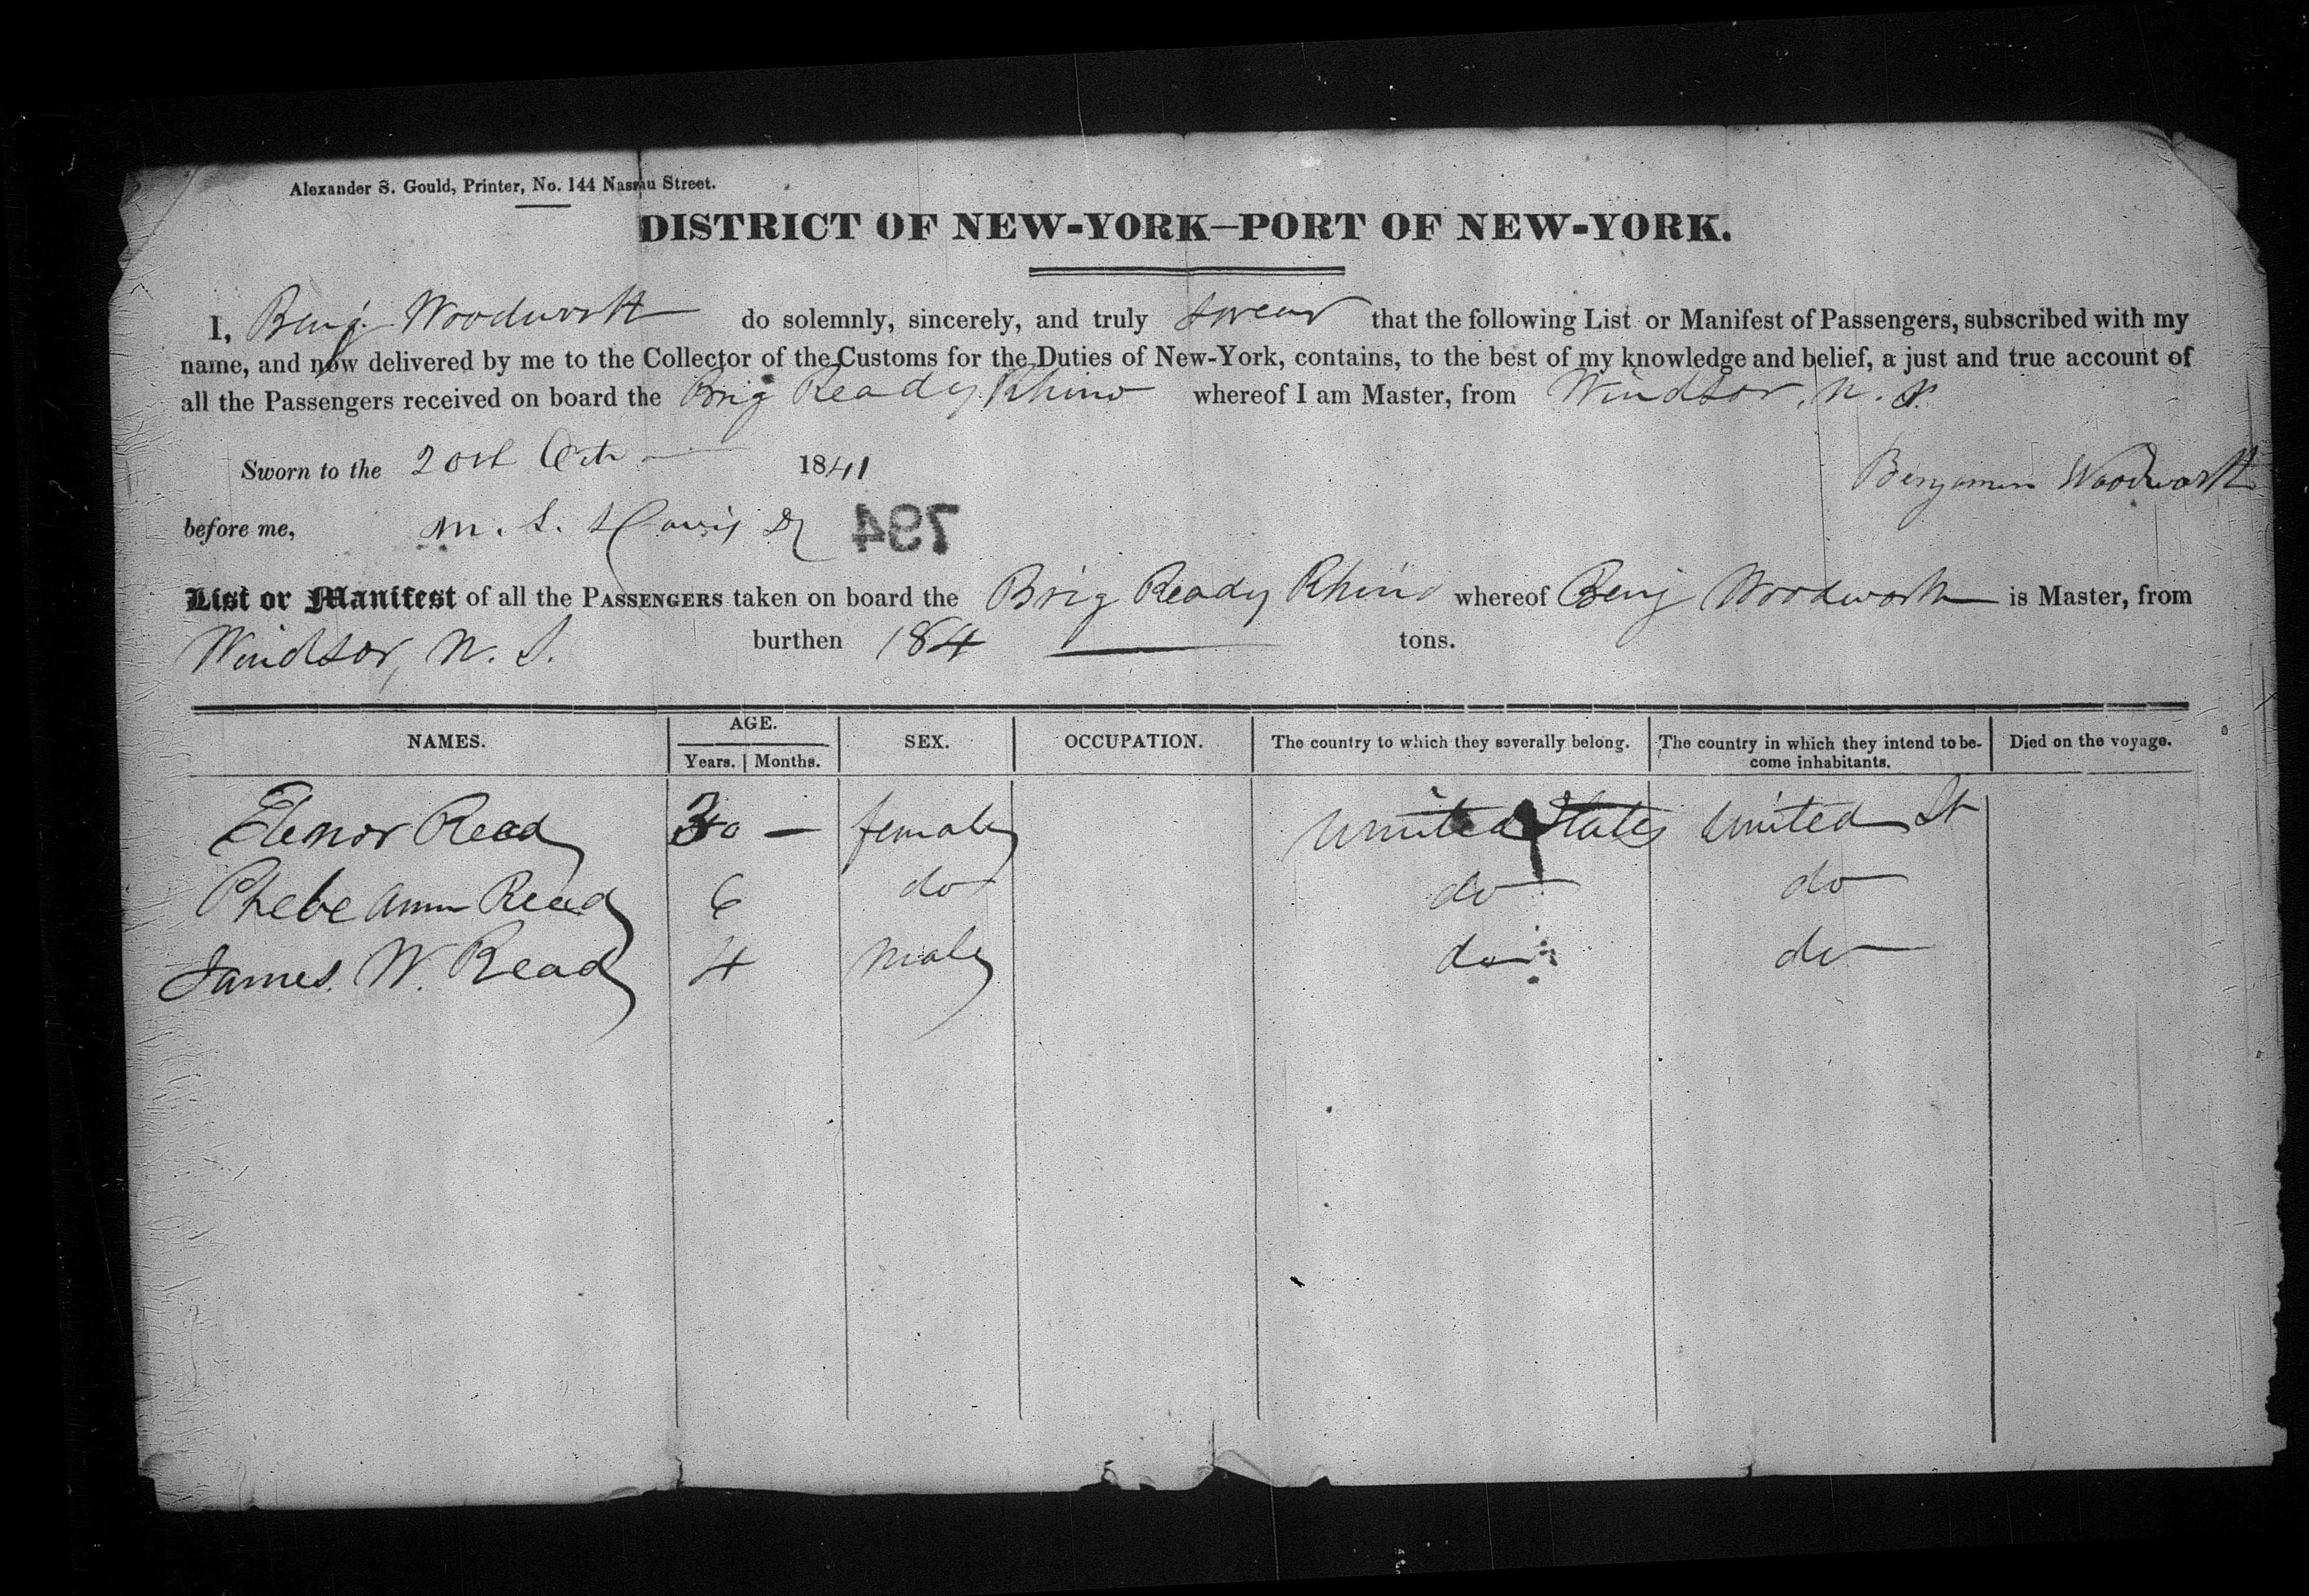 Alexander S. Gould, Printer, No. 144 Nassau Street.
DISTRICT OF NEW-YORK—PORT OF NEW-YORK.
I, Benj. Woodworth do solemnly, sincerely, and truly swear that the following List or Manifest of Passengers, subscribed with my
name, and now delivered by me to the Collector of the Customs for the Duties of New-York, contains, to the best of my knowledge and belief, a just and true account of
all the Passengers received on board the Brig Ready Rhino whereof I am Master, from Windsor, N. S.
Sworn to the 20th Octr 1841
Benjamin Woodworth
before me, M. L. Davis 794
List or Manifest of all the PASSENGERS taken on board the Brig Ready Rhino whereof Benj Woodworth is Master, from
Windsor, N. S. burthen 184 tons.
NAMES. AGE. Years. Months. SEX. OCCUPATION. The country to which they severally belong. The country in which they intend to become inhabitants. Died on the voyage.
Elenor Read 30 — female United States United St
Phebe Ann Read 6 do do do
James W. Read 4 male do do